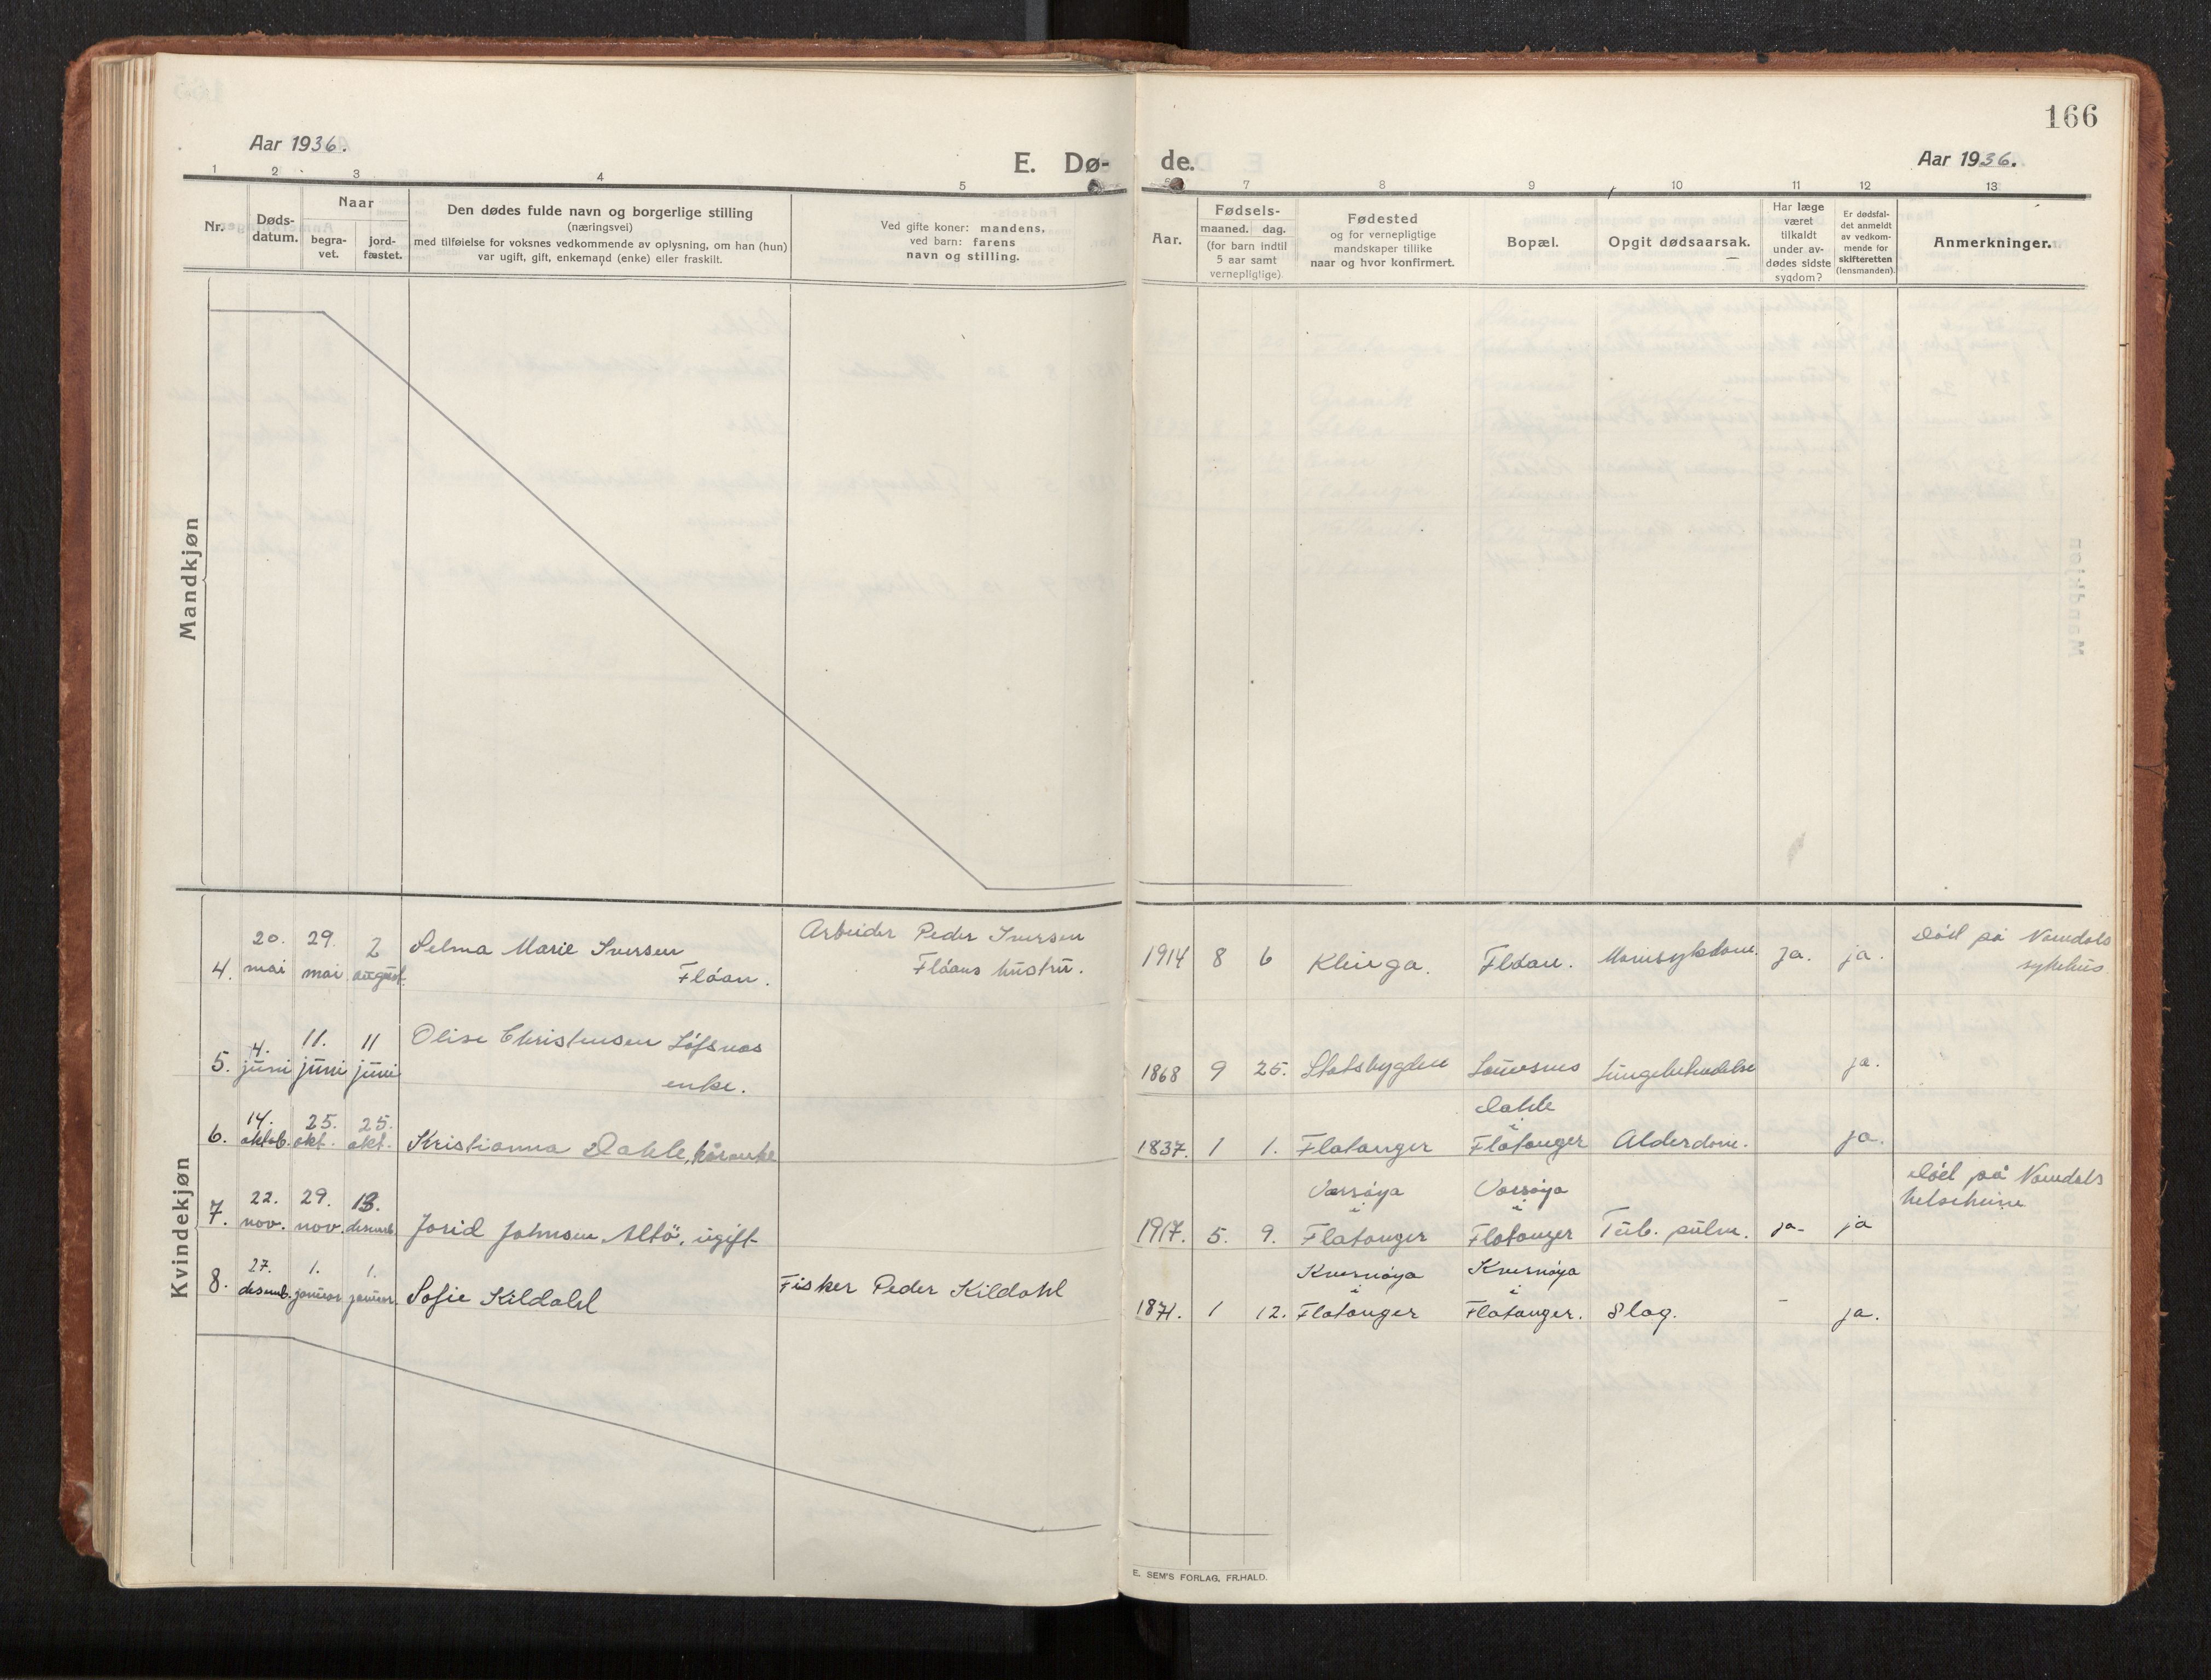 166
Aar 1936.
E. Dø-
de.
Aar 1936.
1 2 3 4 5
7 8 9 10 11 12 13
Nr.
Døds-
datum.
Naar
begra-
vet.
jord-
fæstet.
Den dødes fulde navn og borgerlige stilling
(næringsvei)
med tilføielse for voksnes vedkommende av oplysning, om han (hun)
var ugift, gift, enkemand (enke) eller fraskilt.
Ved gifte koner: mandens,
ved barn: farens
navn og stilling.
Aar.
Fødsels-
maaned. dag.
(for barn indtil
5 aar samt
vernepligtige)
Fødested
og for vernepligtige
mandskaper tillike
naar og hvor konfirmert.
Bopæl.
Opgit dødsaarsak.
Har læge
været
tilkaldt
under av-
dødes sidste
sygdom?
Er dødsfal-
det anmeldt
av vedkom-
mende for
skifteretten
(lensmanden).
Anmerkninger.
Mandkjøn
Kvindekjøn
20. 29. 2 Selma Marie Iversen Arbeider Peder Iversen Död på Namdals
4. mai mai august. Flöan. Flöans hustru. 1914 8 6 Klinga. Flöan. ja. ja. sykehus
4. 11. 11 Olise Christensen Löfsnes
5. juni juni juni enke. 1868 9 25. Statsbygden Lauvsnes Lungebetendelse ja.
14. 25. 25. Dahle
i
6. oktob. okt. okt. Kristianna Dahle, kårenke 1837. 1 1. Flatanger Flatanger Alderdom. ja.
22. 29. 13. Vassöya Vassöya Död på Namdals
i i helseheim
7. nov. nov. desemb. Jorid Johnsen Altö, ugift 1917. 5. 9. Flatanger Flatanger Tub. pulm. ja- ja
27. 1. 1. Kvernöya Kvernöya
i i
8. desemb. januar januar. Sofie Kildahl Fisker Peder Kildahl 1871. 1 12. Flatanger Flatanger. Slag. - ja.
E. SEM'S FORLAG, FR.HALD.